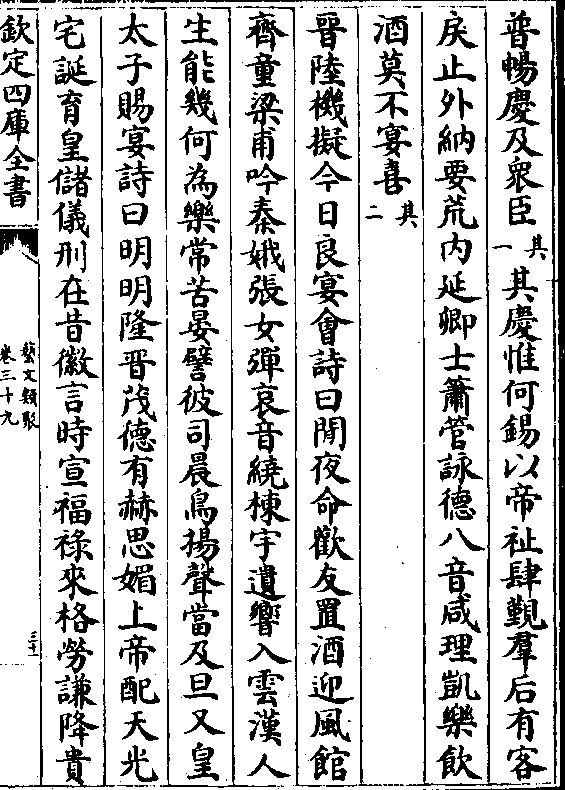 普暢慶及衆臣其一其慶惟何錫以帝祉肆覲羣后有客
戾止外納要荒内延卿士簫管詠德八音咸理凱樂飲
酒莫不宴喜其二
晉陸機擬今日良宴會詩曰閒夜命歡友置酒迎風館
齊童梁甫吟秦娥張女彈哀音繞棟宇遺響入雲漢人
生能幾何為樂常苦晏譬彼司晨鳥揚聲當及旦又皇
太子賜宴詩曰明明隆晉茂德有赫思媚上帝配天光
宅誕育皇儲儀刑在昔徽言時宣福祿來格勞謙降貴
欽定四庫全書
藝文類聚
卷三十九
三十一